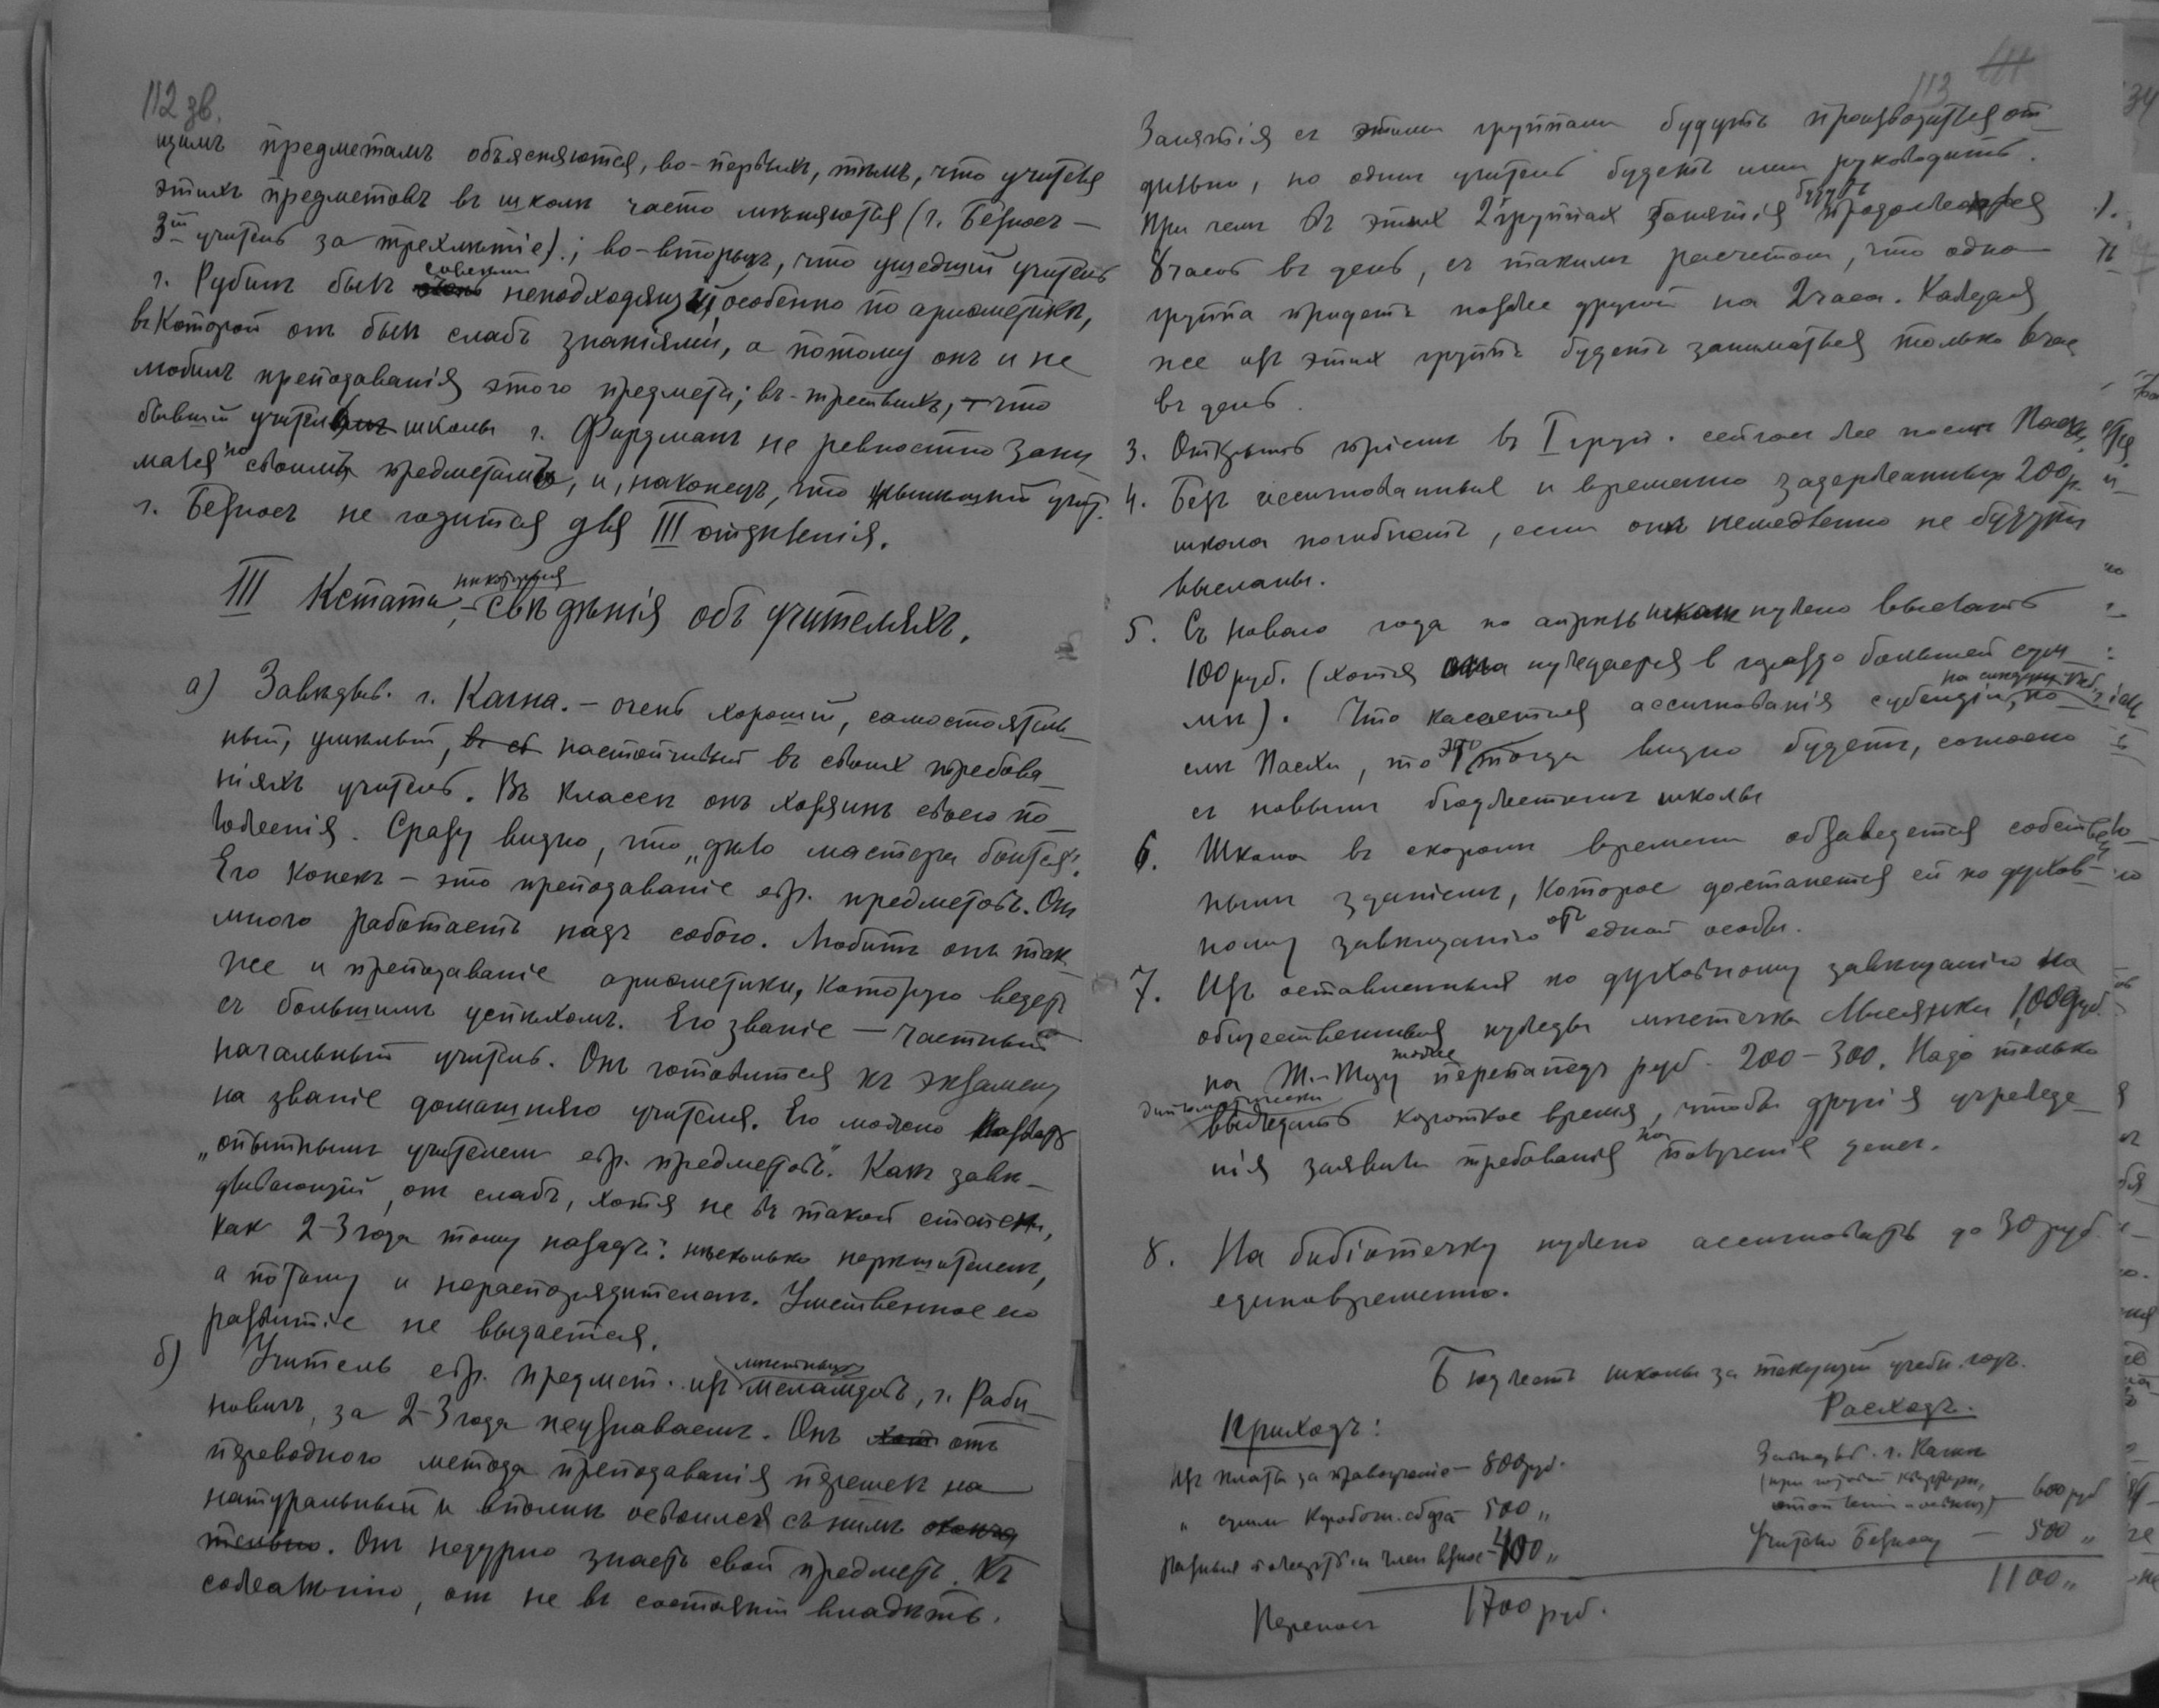 112 зв.
щимъ предметамъ объясняются, во-первыхъ, тѣмъ, что учителя
этихъ предметовъ въ школѣ часто мѣняются (г. Безносъ —
3й учитель за трехлѣтіе).; во-вторыхъ, что ушедшій учитель
г. Рубинъ былъ совсѣмъ неподходящій, особенно по ариѳметикѣ,
въ которой онъ былъ слабъ знаніями, а потому онъ и не
любилъ преподаванія этого предмета; въ-третьихъ, что
бывшій учитель школы г. Фирдманъ не ревностно зани
мался по своимъ предметамъ, и, наконецъ, что нынѣшній учит.
г. Безносъ не годится для III отдѣленія.
III Кстати, — нѣкоторыя свѣдѣнія объ учителяхъ.
а) Завѣдыв. г. Кагна. — очень хорошій, самостоятель-
ный, умѣлый, настойчивый въ своихъ требова-
ніяхъ учитель. Въ классѣ онъ хозяинъ своего по-
ложенія. Сразу видно, что „дѣло мастера боится".
Его конекъ — это преподаваніе евр. предметовъ. Онъ
много работаетъ надъ собою. Любитъ онъ так-
же и преподаваніе ариѳметики, которую ведетъ
съ большимъ успѣхомъ. Его званіе — частный
начальный учитель. Онъ готовится къ экзамену
на званіе домашняго учителя. Его можно назвать
„опытнымъ учителемъ евр. предметовъ". Какъ завѣ-
дывающій, онъ слабъ, хотя не въ такой степени,
какъ 2-3 года тому назадъ: нѣсколько нерѣшителенъ,
а потому и нераспорядителенъ. Умственное его
развитіе не выдается.
б) Учитель евр. предмет. изъ мѣстныхъ меламдовъ, г. Раби-
новичъ, за 2-3 года неузнаваемъ. Онъ отъ
переводнаго метода преподаванія перешелъ на
натуральный и вполнѣ освоился съ нимъ
. Онъ недурно знаетъ свой предметъ. Къ
сожалѣнію, онъ не въ состояніи владѣть.
113
Занятія съ этими группами будутъ производиться от-
дѣльно, но одинъ учитель будетъ ими руководить.
При чемъ въ этихъ 2 группахъ занятія будутъ продолжаться
8 часовъ въ день, съ такимъ расчетомъ, что одна
группа придетъ позже другой на 2 часа. Каждая
же изъ этихъ группъ будетъ заниматься только 6 час
въ день.
3. Открыть пріемъ въ I групп. сейчасъ же послѣ Пасхи.
4. Безъ ассигнованныхъ и временно задержанныхъ 200 р.
школа погибнетъ, если онѣ немедленно не будутъ
высланы.
5. Съ новаго года по апрѣль школѣ нужно высылать
100 руб. (хотя она нуждается в гораздо большей сум-
мѣ). Что касается ассигнованія субсидіи, по
слѣ Пасхи, то это тогда видно будетъ, согласно
съ новымъ бюджетомъ школы
6. Школа въ скоромъ времени обзаведется собствен
нымъ зданіемъ, которое достанется ей по духов-
ному завѣщанію отъ одной особы.
7. Изъ оставленныхъ по духовному завѣщанію на
общественныя нужды мѣстечка Мысянки 1,000 руб.
на Т.-Тору тоже перепадетъ руб. 200-300. Надо только
выждать короткое время, чтобы другія учрежде-
нія заявили требованія на полученіе денег.
8. На библіотечку нужно ассигновать до 30 руб.
единовременно.
Бюджетъ школы за текущій учебн. годъ.
Приходъ:
Расходъ.
Изъ платы за правоученіе — 800 руб.
„ суммъ коробочн. сбора — 500 „
400 „
Завѣдыв. г. Кагнѣ
(при готовой квартирѣ,
600 руб
Учителю Безносу — 500 „
Переносъ 1700 руб.
1100 „